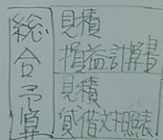 總合予算
見積
損益計算書
見積
貸借対照表